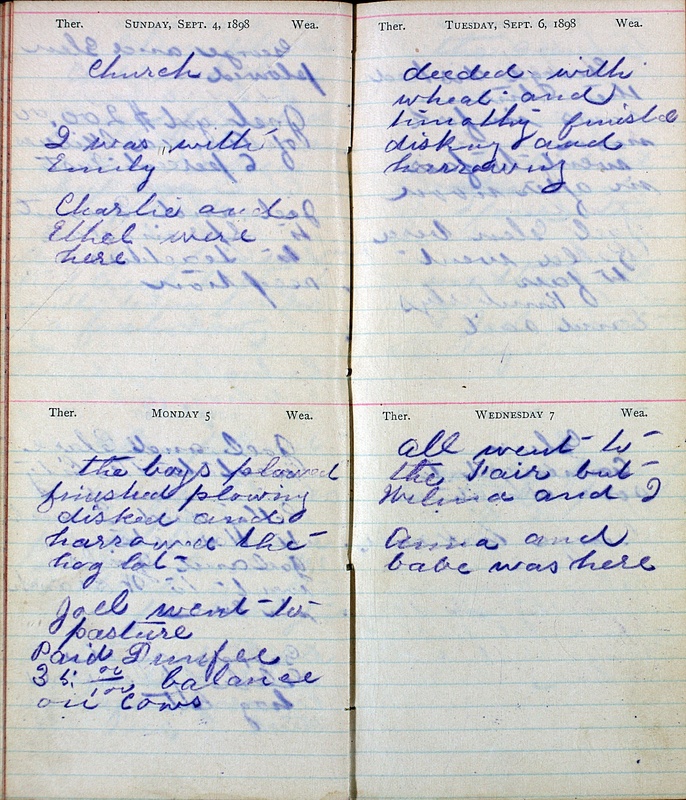 Ther. SUNDAY, SEPT. 4, 1898 Wea.
Church
I was with
Emily
Charlie and
Ethel were
here
Ther. MONDAY 5 Wea.
the boys plowed
finished plowing
disked and
harrowed the
hog lot
Joel went to
pasture
Paid Dunfee
35 00/100 balance
on cows
Ther. TUESDAY, SEPT. 6, 1898 Wea.
deeded with
wheat and
timothy finished
disking and
harrowing
Ther. WEDNESDAY 7 Wea.
all went to
the Fair but
Wilma and I
Anna and
babe was here